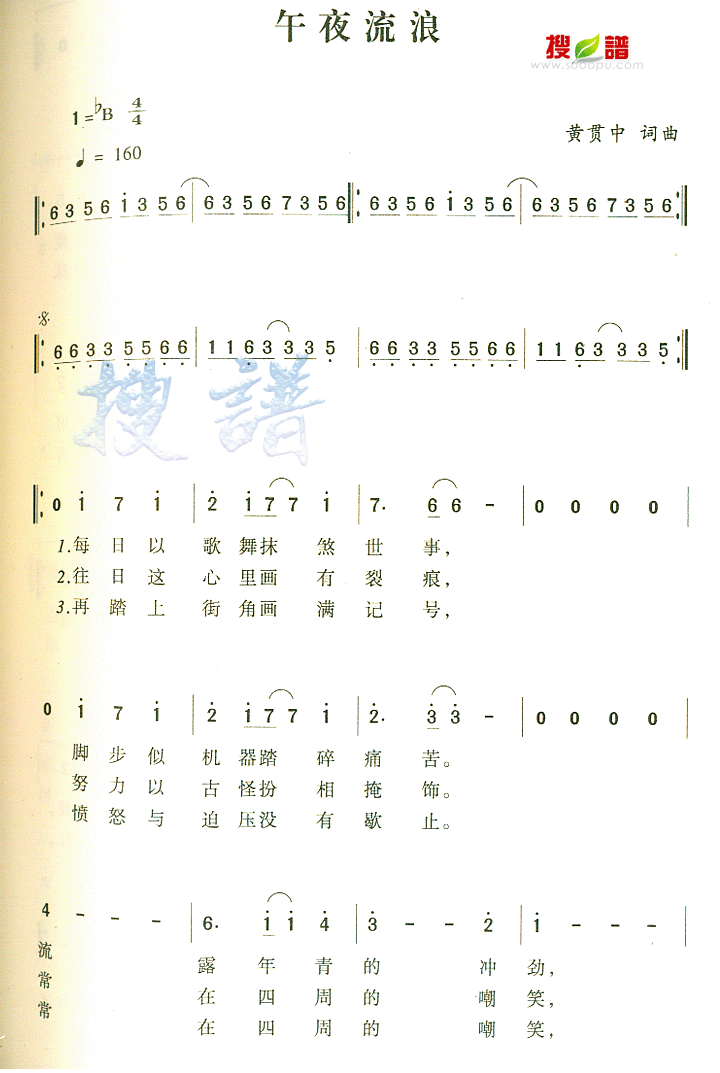 午夜流浪
搜谱
www.sooopu.com
1=♭B 4/4
♩= 160
黄贯中 词曲
6 3 5 6 1 3 5 6 | 6 3 5 6 7 3 5 6 | 6 3 5 6 1 3 5 6 | 6 3 5 6 7 3 5 6
6 6 3 3 5 5 6 6 | 1 1 6 3 3 3 5 | 6 6 3 3 5 5 6 6 | 1 1 6 3 3 3 5
搜譜
0 1 7 1 | 2 1 7 7 1 | 7. 6 6 - | 0 0 0 0
1.每日以 歌舞抹 煞世事,
2.往日这 心里画 有裂痕,
3.再踏上 街角画 满记号,
0 1 7 1 | 2 1 7 7 1 | 2. 3 3 - | 0 0 0 0
脚步似 机器踏 碎痛苦。
努力以 古怪扮 相掩饰。
愤怒与 迫压没 有歇止。
4 - - - | 6. 1 1 4 | 3 - - 2 | 1 - - -
流 露年青的 冲劲,
常 在四周的 嘲笑,
常 在四周的 嘲笑,